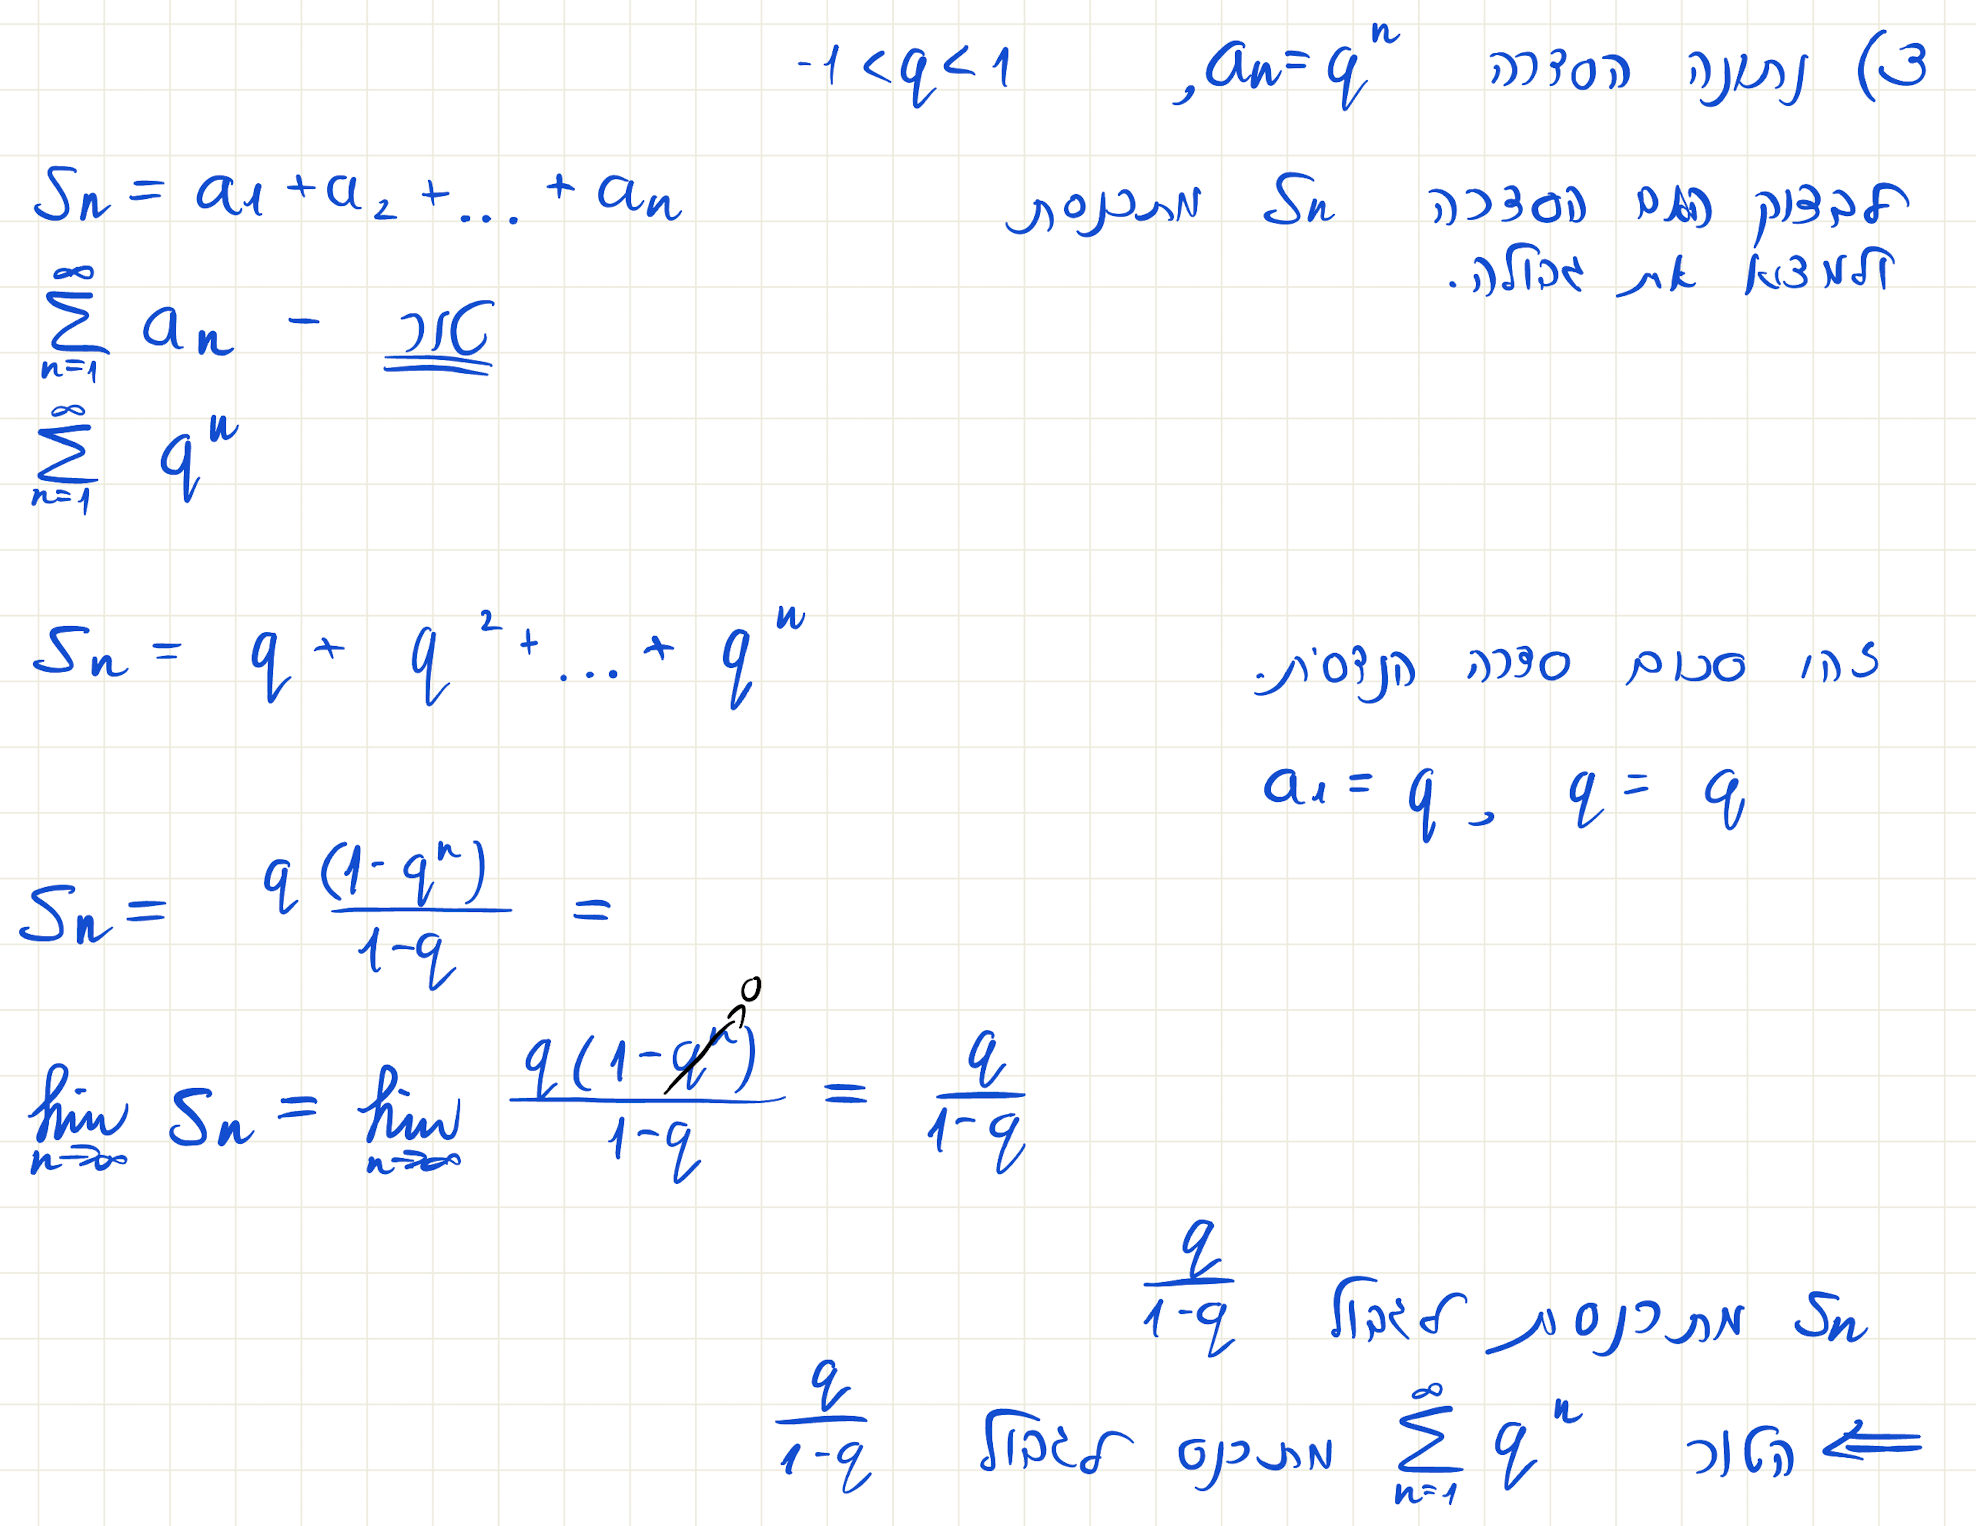 3) נתונה הסדרה aₙ = qⁿ, -1 < q < 1
לבדוק האם הסדרה Sₙ מתכנסת Sₙ = a₁ + a₂ + ... + aₙ
ולמצא את גבולה.
∑_{n=1}^{∞} aₙ - טור
∑_{n=1}^{∞} qⁿ
Sₙ = q + q² + ... + qⁿ זהו סכום סדרה הנדסית.
a₁ = q, q = q
Sₙ = q(1-qⁿ)/(1-q) =
lim_{n→∞} Sₙ = lim_{n→∞} q(1-qⁿ)/(1-q) = q/(1-q) 0
Sₙ מתכנסת לגבול q/(1-q)
⇐ הטור ∑_{n=1}^{∞} qⁿ מתכנס לגבול q/(1-q)